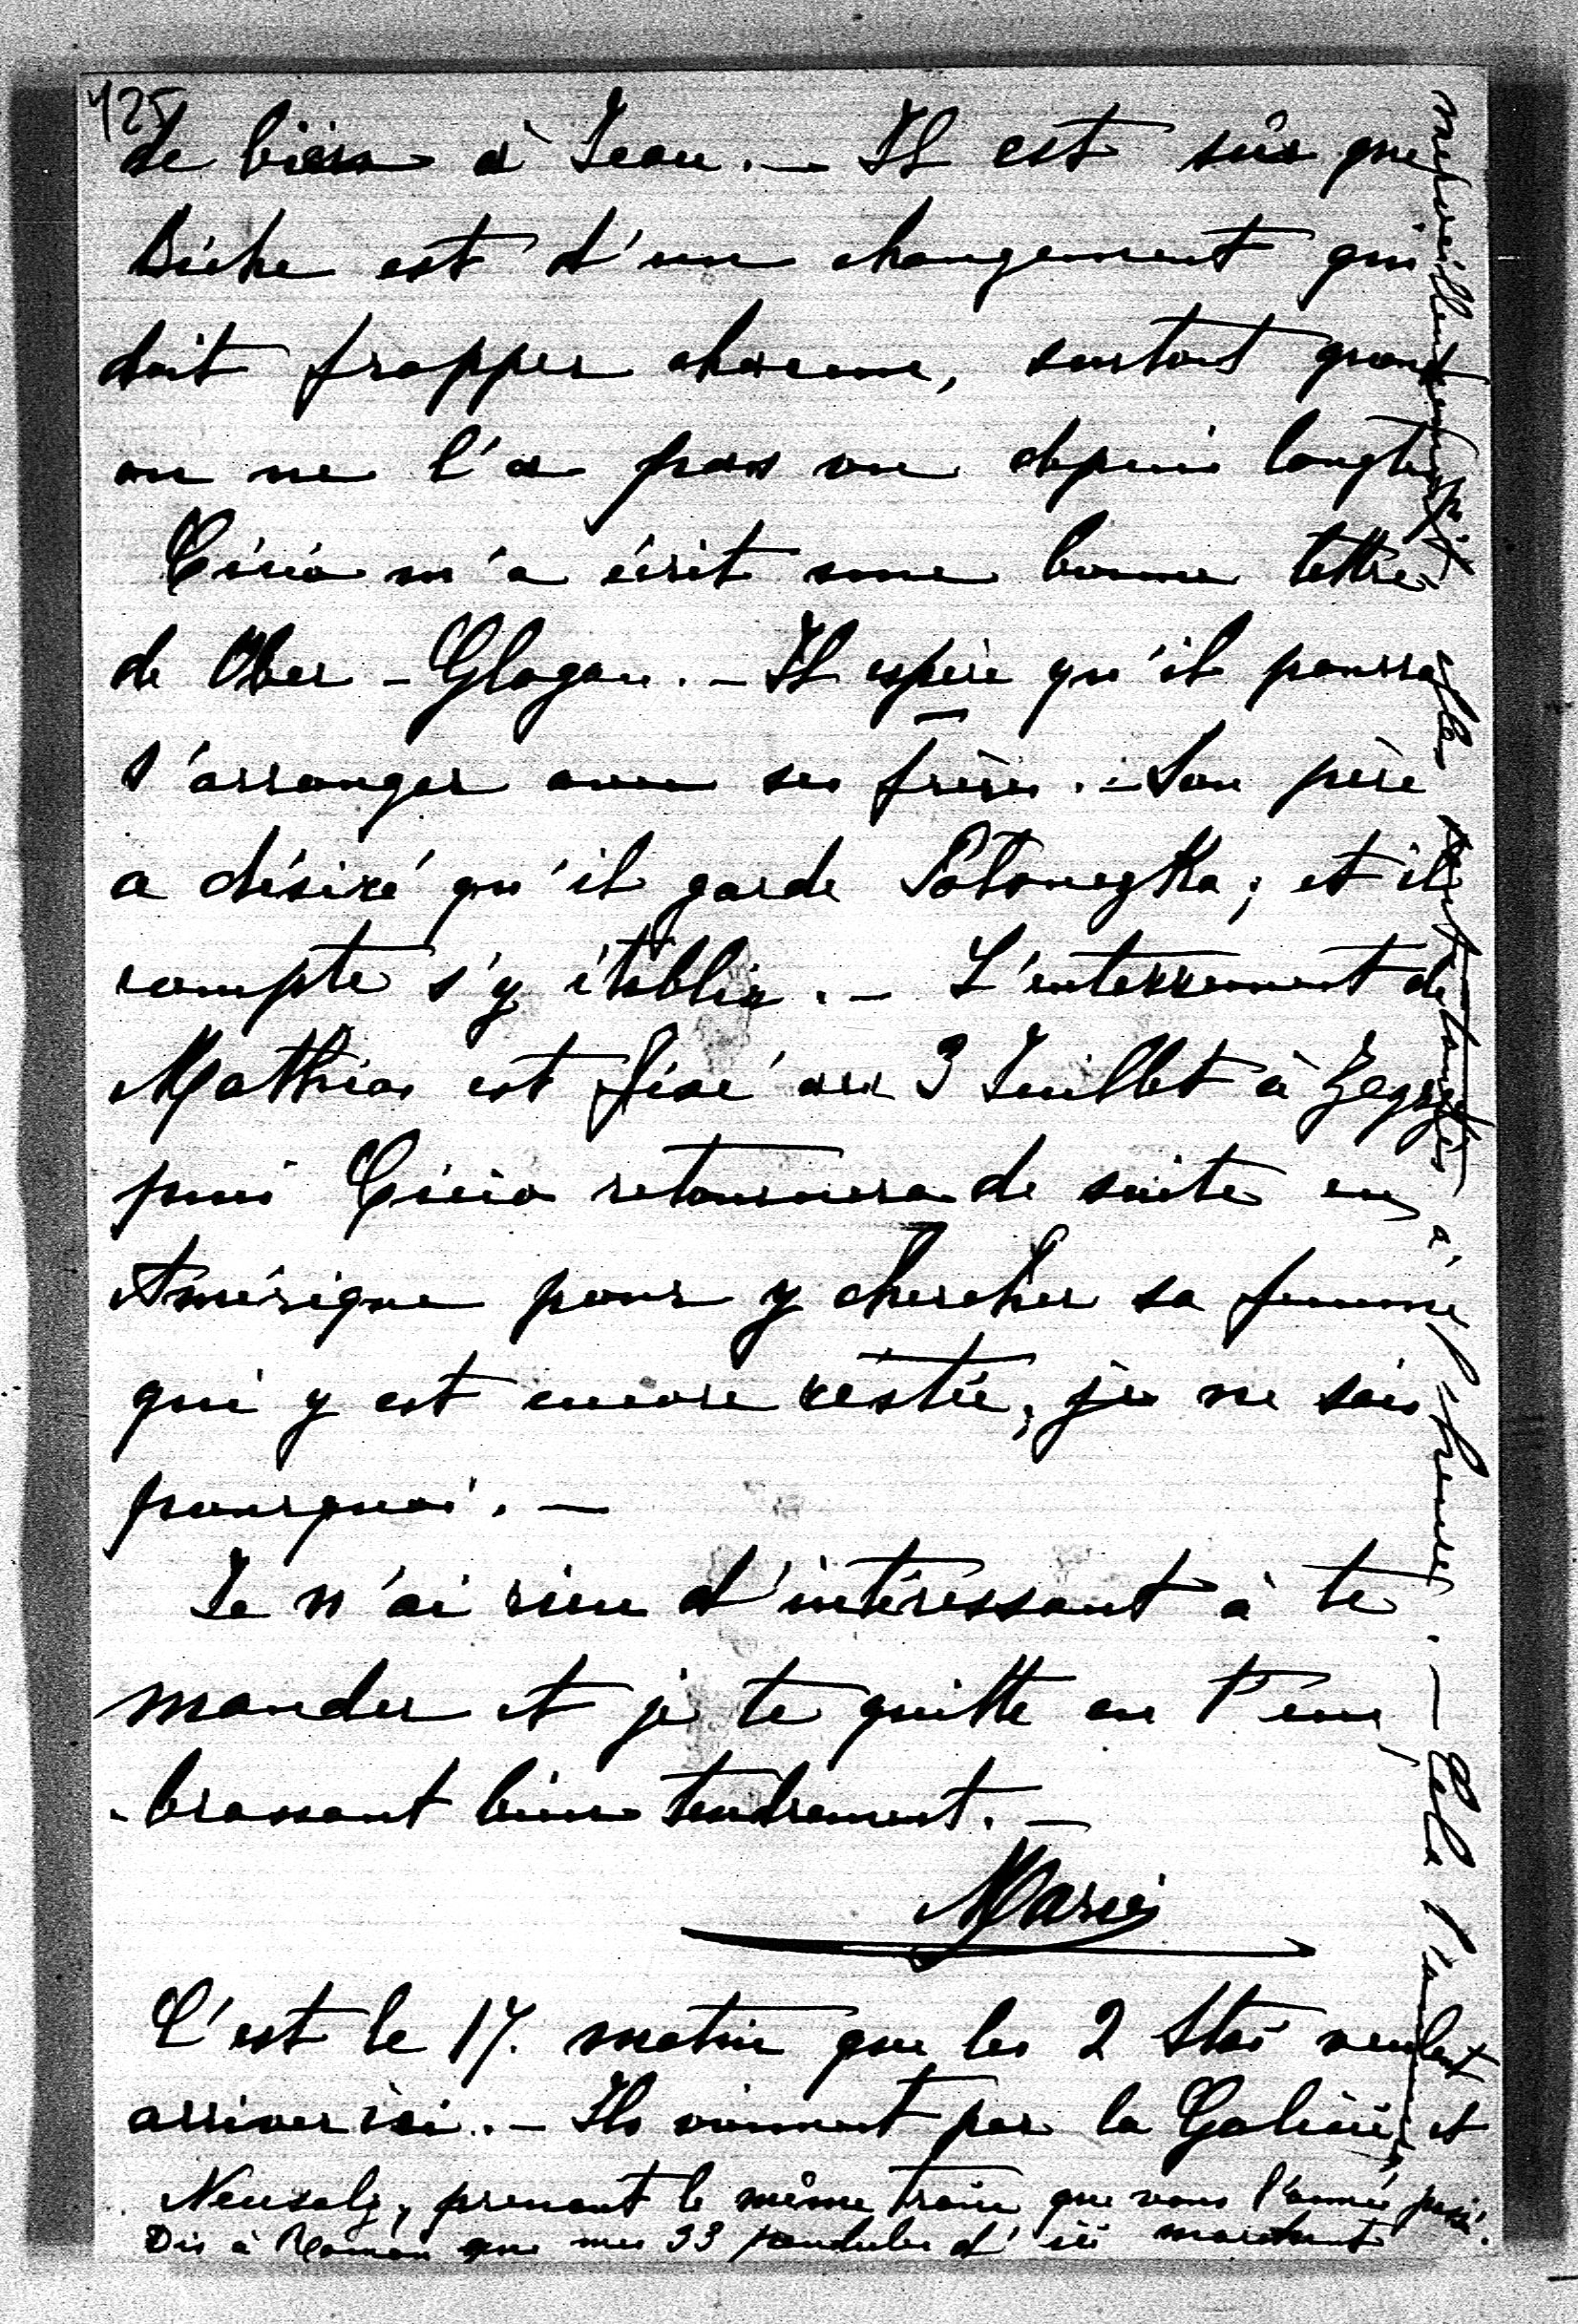 425
de bien à Jean. — Il est sûr que
Biche est d'un changement qui
doit frapper chacune, surtout quand
on ne l'a pas vue depuis longtemps
Cicio m'a écrit une bonne lettre
de Ober-Glogau. — Il espère qu'il pourra
s'arranger avec ses frères. — Son père
a désiré qu'il garde ; et il
compte s'y établir. — L'enterrement de
Mathias est fixé au 3 Juillet à
puis Cicio retournera de suite en
Amérique pour y chercher sa femme
qui y est encore restée, je ne sais
pourquoi. —
Je n'ai rien d'intéressant à te
mander et je te quitte en t'em
-brassant bien tendrement. —
Marie
C'est le 17. matin que les 2 Stas veulent
arriver ici. — Ils viennent par la Galicie, et
Neusalz, prenant le même train que vous l'année passé.
Dis à Roman que mes 33 pendules d'ici marchent
merveilleusement et à l'heure. — Cela